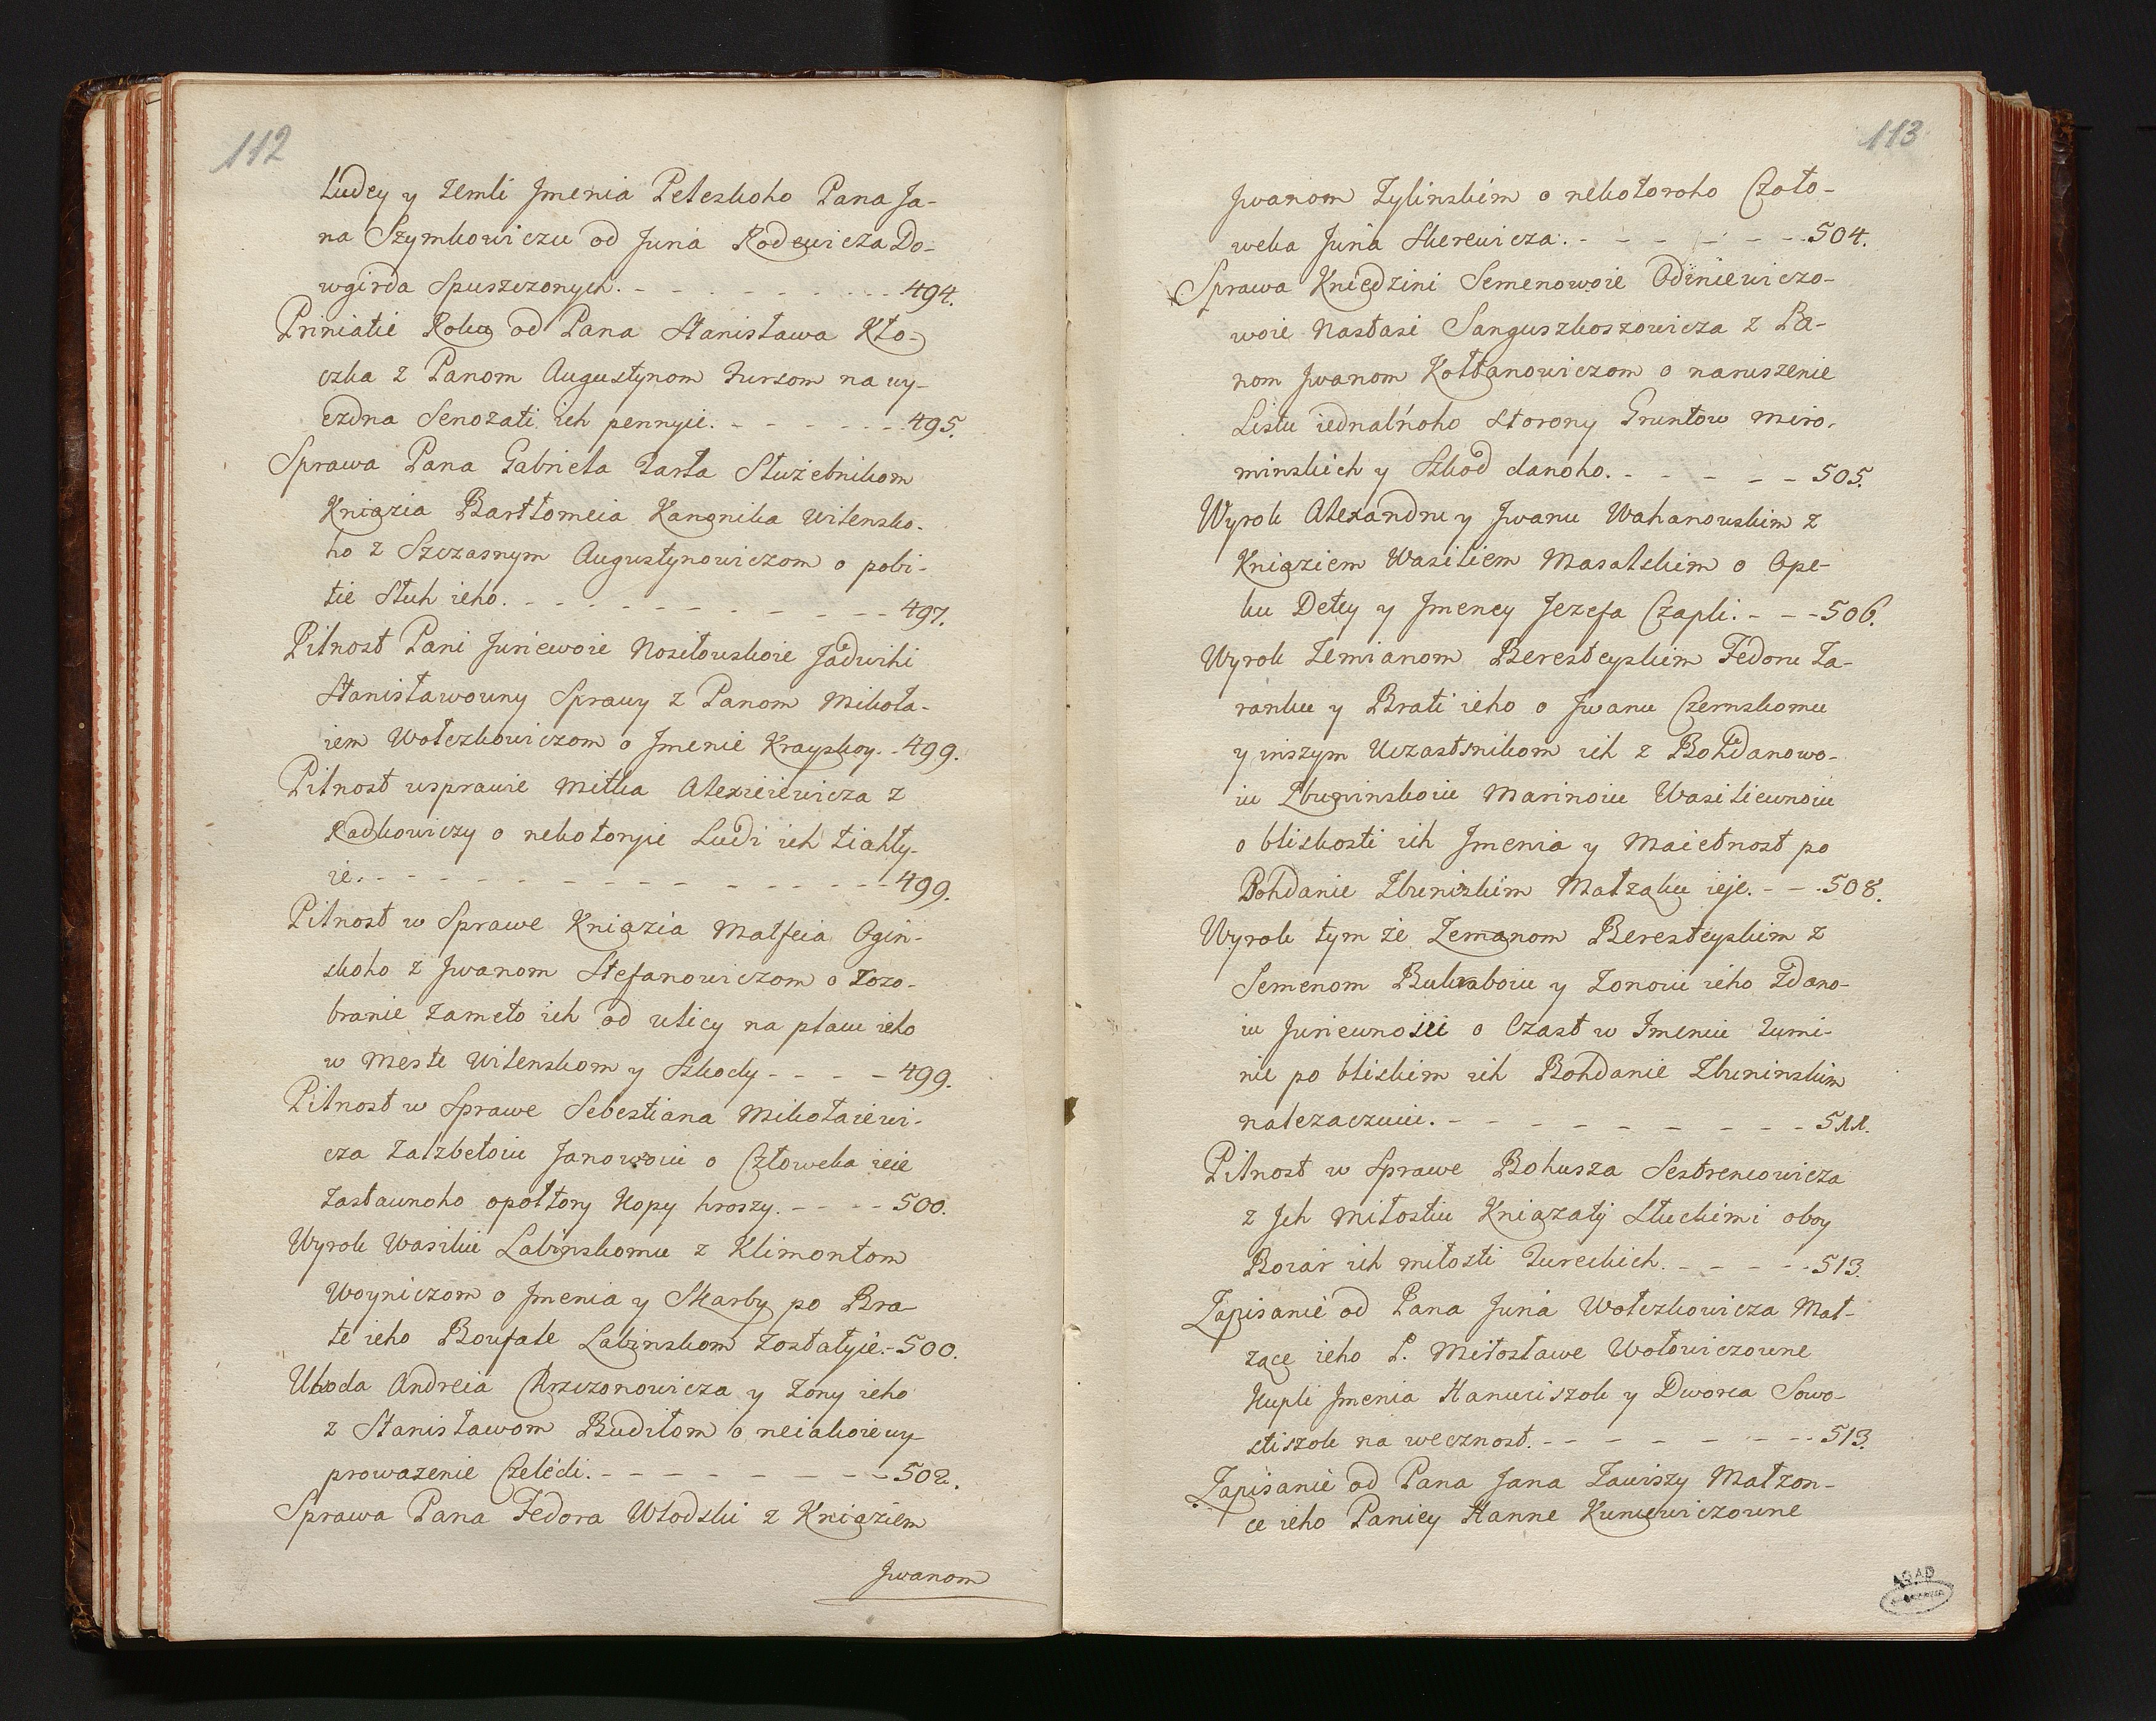 112
Ludey y Zemli Jmenia Peleskoho Pana Ja-
na Szymkowiczu od Juria Rodewicza Do-
wgirda Spuszczonych. - - - - - - - - - - 494.
Priniatie Roku od Pana Stanisława Kło-
czka z Panom Augustynom Fursom na wy-
ezdna Senozati ich pennyie. - - - - - - - 495.
Sprawa Pana Gabriela Tarła Służebnikom
Kniązia Bartłomeia Kanonika Wilensko-
ho z Szczasnym Augustynowiczom o pobi-
tie Sluh ieho. - - - - - - - - - - - - 497.
Pilnost Pani Juriewoie Nosiłowskoie Jadwihi
Stanisławowny Sprawy z Panom Mikoła-
iem Wołczkowiczom o Jmenie Krayskoy. - 499.
Pilnost wsprawie Mitka Alexieiewicza z
Radkowiczy o nekotoryie Ludi ich tiahły-
ie. - - - - - - - - - - - - - - - - 499.
Pilnost w Sprawe Kniązia Matfeia Ogin-
skoho z Jwanom Stefanowiczom o Zozo-
branie zameto ich od ulicy na płau ieho
w Meste Wilenskom y Szkody - - - - 499.
Pilnost w Sprawe Sebestiana Mikołaiewi-
cza Zalzbetoiu Janowoiu o Człoweka ieie
Zastawnoho opołtory Kopy hroszy. - - - - 500.
Wyrok Wasiliu Labinskomu z Klimontom
Woyniczom o Jmenia y Skarby po Bra-
te ieho Boufale Labinskom Zostałyie. - 500.
Uhoda Andreia Chrzczonowicza y Zony ieho
z Stanisławom Budiłom o neiakoie wy-
prowazenie Czeledi. - - - - - - - - - 502.
Sprawa Pana Fedora Włodski z Kniaziem
Jwanom
113
Jwanom Zylinskim o nekotoroho Czoło-
weka Juria Skerewicza. - - - - - - - 504.
Sprawa Kniedzini Semenowoie Odiniewiczo-
woie Nastasi Sanguszkoszowicza z Pa-
nom Jwanom Kołłanowiczom o naruszenie
Listu iednalnoho storony Gruntow Miro-
minskich y Szkod danoho. - - - - - 505.
Wyrok Alexandru y Jwanu Wahanowskim z
Kniaziem Wasiliem Masalskim o Ope-
ku Detey y Jmeney Jezefa Czapli. - - - 506.
Wyrok Zemianom Beresteyskim Fedoru Ta-
ranku y Brati ieho o Jwanu Czernskomu
y inszym Uczastnikom ich z Bohdanowo-
iu Zbuninskoiu Marinoiu Wasiliewnoiu
o bliskosti ich Jmenia y Maietnost po
Bohdanie Zbuniskim Małzaku ieje. - - 508.
Wyrok tym że Zemanom Beresteyskim z
Semenom Bukraboiu y Zonoiu ieho Zdano-
iu Juriewnoiu o Czast w Imeniu Lumi-
nie po bliskim ich Bohdanie Zbuninskim
nalezaczuiu. - - - - - - - - - - 511.
Pilnost w Sprawe Bohusza Sestrencowicza
z Jch Miłostiu Kniazaty Słuckimi oboy
Boiar ich miłosti Tureckich. - - - - - 513.
Zapisanie od Pana Juria Wołczkowicza Mał-
zące ieho P. Miłosławe Wołowiczowne
Kupli Jmenia Hanuciszok y Dworca Sowo-
stiszok na wecznost. - - - - - - - - 513.
Zapisanie od Pana Jana Zawiszy Małzon-
ce ieho Paniey Hanne Kuncewiczowne
AGAD